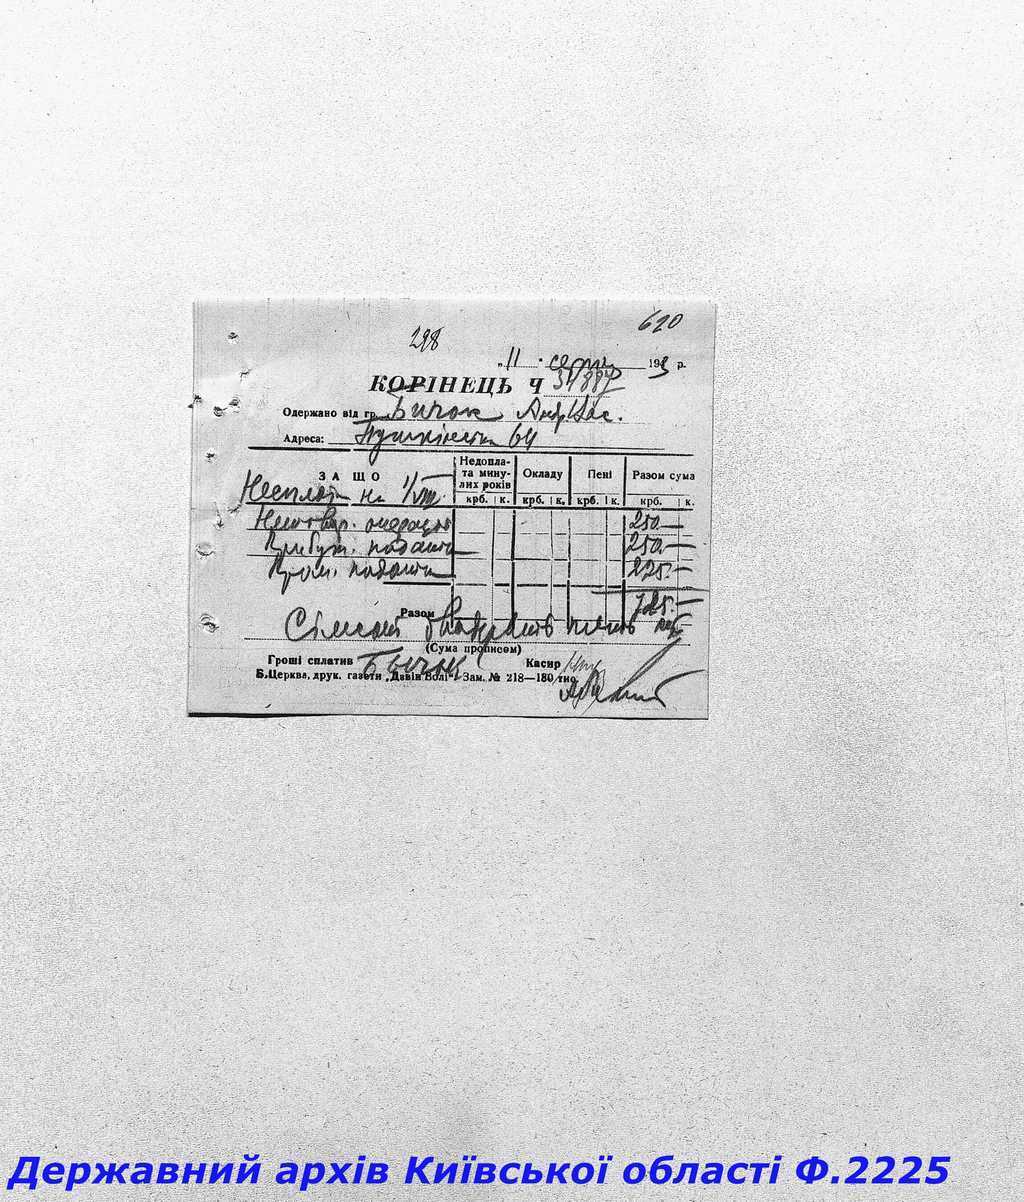 620
298
„ 11 " серпня 1943 р.
КОРІНЕЦЬ Ч 31887
Одержано від гр. Бичок Андр. Вас.
Адреса: Пушкінська 64
ЗА ЩО Недоплата минулих років Окладу Пені Разом сума
на 1/VIII. крб. к. крб. к. крб. к. крб. к.
250.—
Прибут. податк 250.—
Пром. податк 225.—
Разом 725.—
Сімсот двадцять п'ять крб
(Сума прописом)
Гроші сплатив Бычок Касир
Б.Церква, друк. газети „Дзвін Волі". Зам. № 218—180 тис.
Державний архів Київської області Ф.2225